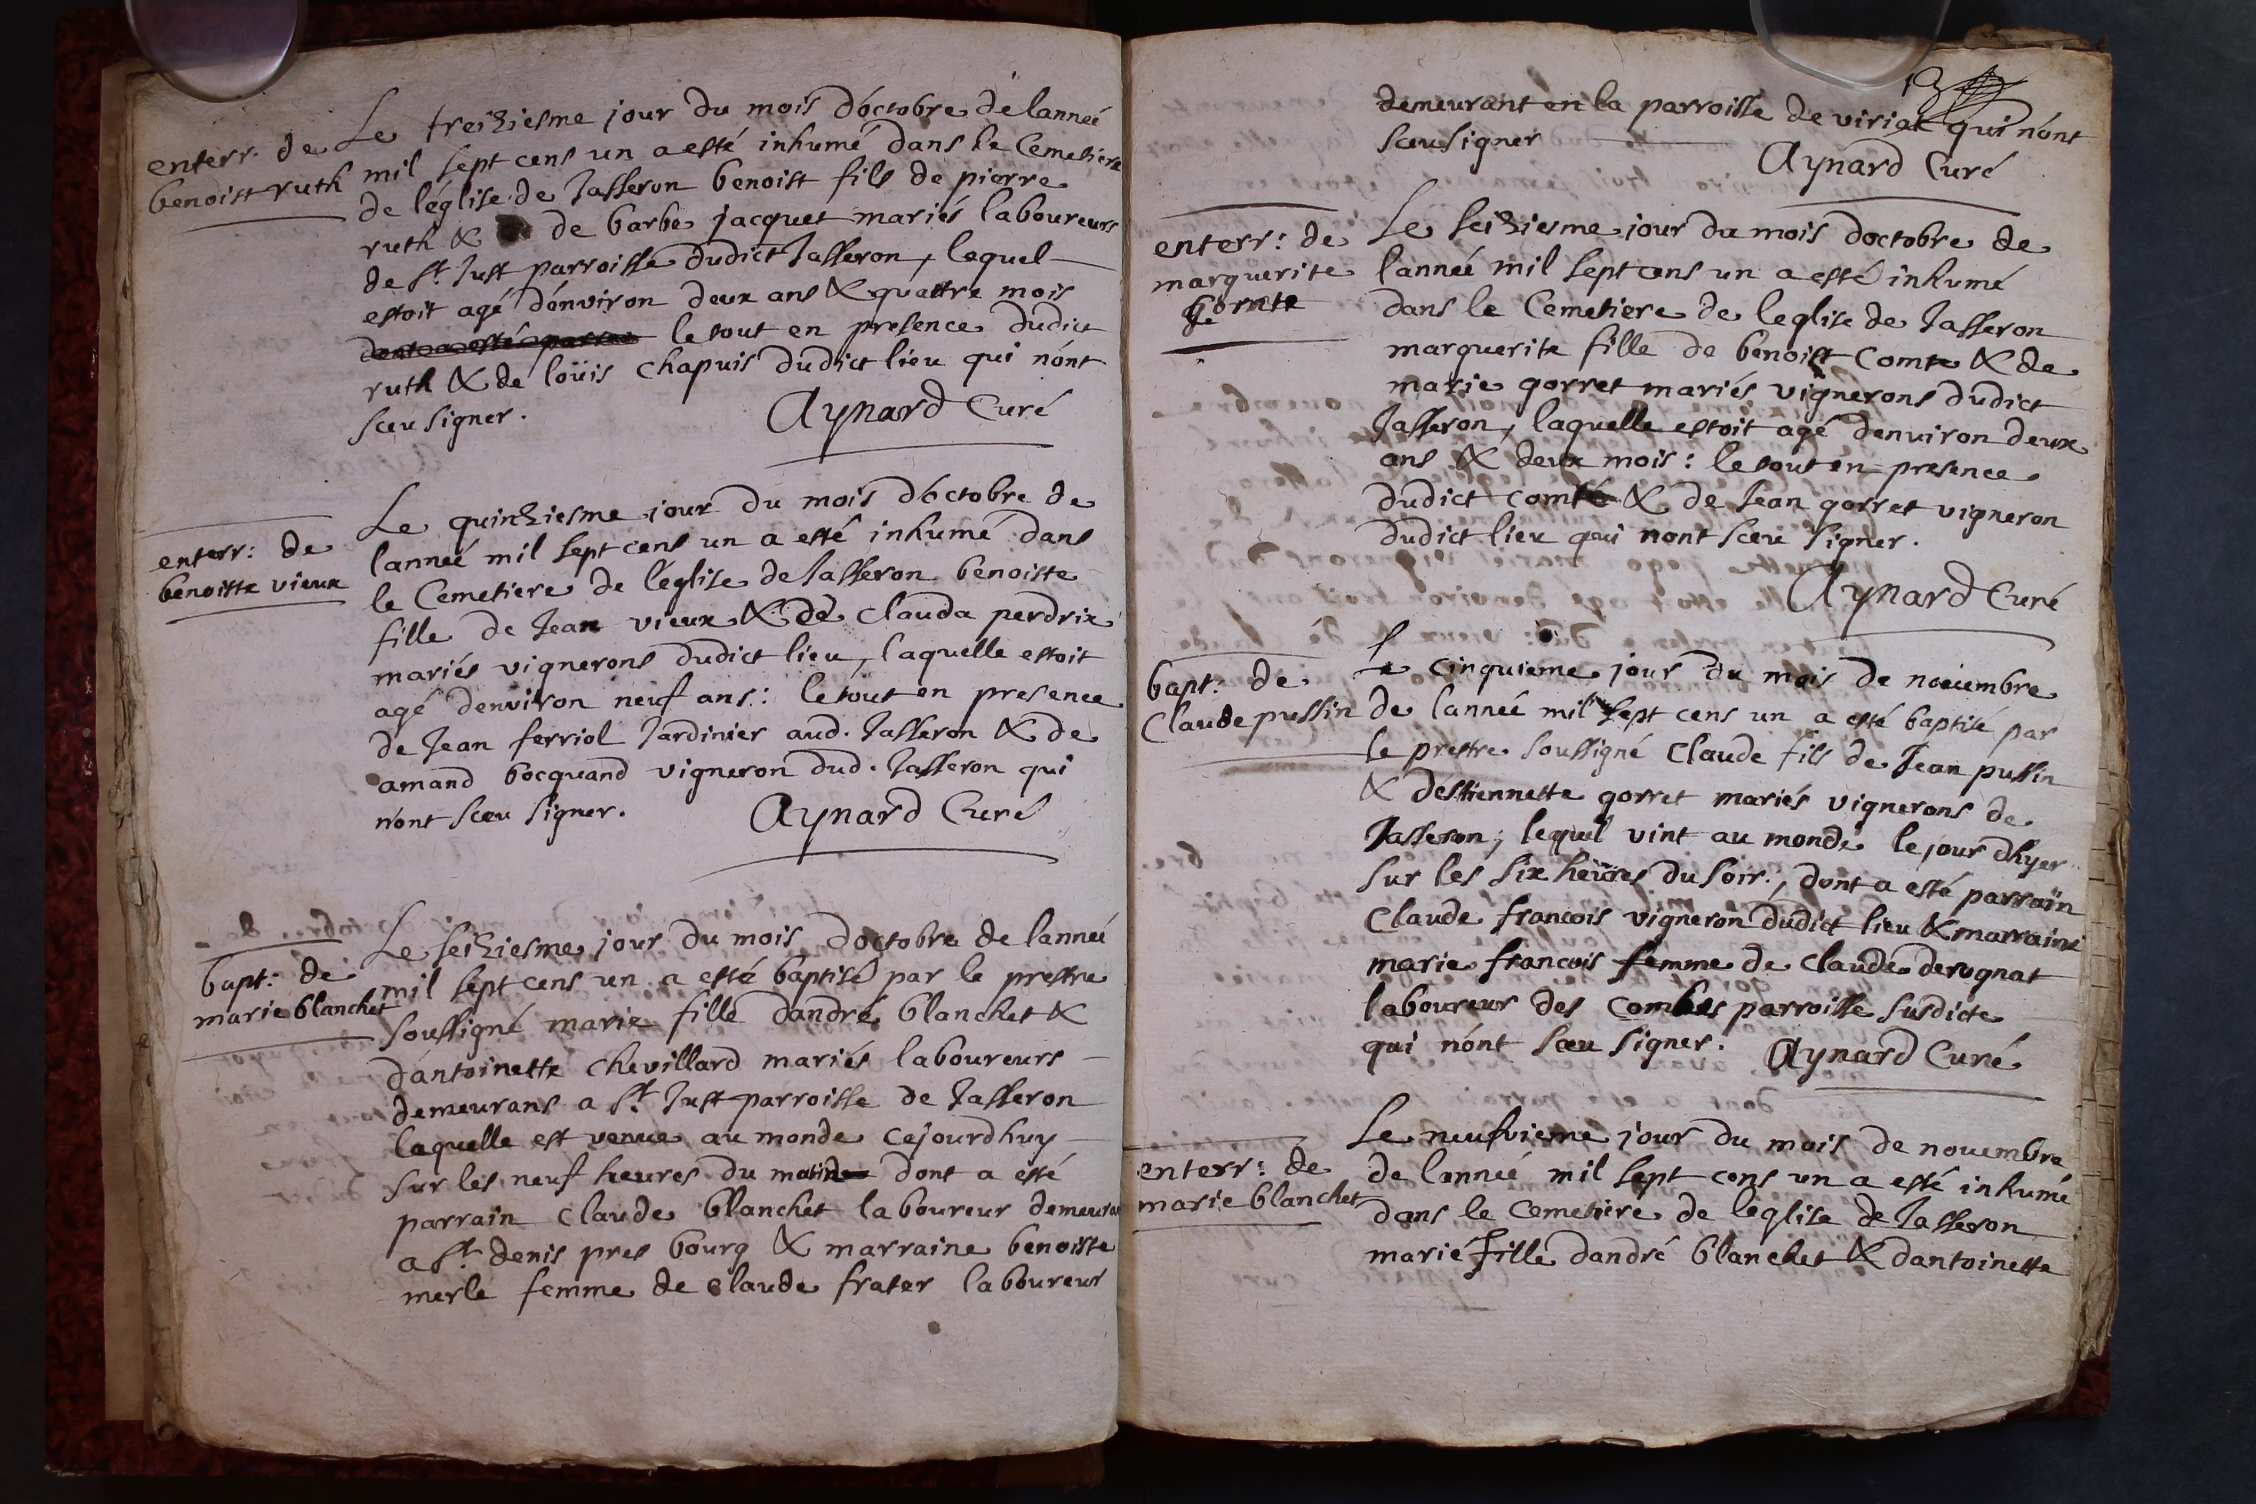 enterr. de
benoist ruth
Le treiziesme jour du mois d'octobre de lanneé
mil sept cens un a esté inhumé dans le Cemetiere
de l'église de Jasseron benoist fils de pierre
ruth & de barbe jacquet mariés laboureurs
de St. Just parroisse dudict Jasseron, lequel
estoit agé d'environ deux ans & quattre mois
le tout en presence dudict
ruth & de loüis chapuis dudict lieu qui n'ont
sceu signer.
Aynard Curé
enterr: de
benoitte vieux
Le quinziesme jour du mois d'octobre de
lanneé mil sept cens un a esté inhumé dans
le Cemetiere de l'église de Jasseron benoiste
fille de Jean vieux & de Clauda perdrix
mariés vignerons dudict lieu, laquelle estoit
agé denviron neuf ans: le tout en presence
de Jean ferriol Jardinier aud. Jasseron & de
amand bocquand vigneron dud. Jasseron qui
n'ont sceu signer.
Aynard Curé
bapt: de
marie blanchet
Le seiziesme jour du mois d'octobre de lanneé
mil sept cens un a esté baptisé par le prestre
soussigné marie fille d'andré blanchet &
d'antoinette Chevillard mariés laboureurs
demeurans a St. Just parroisse de Jasseron
laquelle est venue au monde cejourdhuy
sur les neuf heures du matin dont a esté
parrain Claude blanchet laboureur demeurant
a St. denis pres bourg & marraine benoiste
merle femme de Claude frater laboureur
demeurant en la parroisse de viriat qui n'ont
sceu signer
Aynard Curé
enterr: de
marguerite
Comte
Le seiziesme jour du mois d'octobre de
l'anneé mil sept cens un a esté inhumé
dans le Cemetiere de leglise de Jasseron
marguerite fille de benoist Comte & de
marie gorret mariés vignerons dudict
Jasseron, laquelle estoit agé denviron deux
ans & deux mois: le tout en presence
dudict comte & de Jean gorret vigneron
dudict lieu qui nont sceu signer.
Aynard Curé
bapt: de
Claude pussin
Le cinquieme jour du mois de novembre
de lanneé mil sept cens un a esté baptisé par
le prestre soussigné Claude fils de Jean pussin
& d'estiennette gorret mariés vignerons de
Jasseron, lequel vint au monde le jour dhyer
sur les six heüres du soir, dont a esté parrain
Claude francois vigneron dudict lieu & marraine
marie francois femme de Claude derognat
laboureur des Combes parroisse susdicte
qui n'ont sceu signer.
Aynard Curé
enterr: de
marie blanchet
Le neufvieme jour du mois de novembre
de lanneé mil sept cens un a esté inhumé
dans le Cemetiere de leglise de Jasseron
marie fille d'andré blanchet & dantoinette